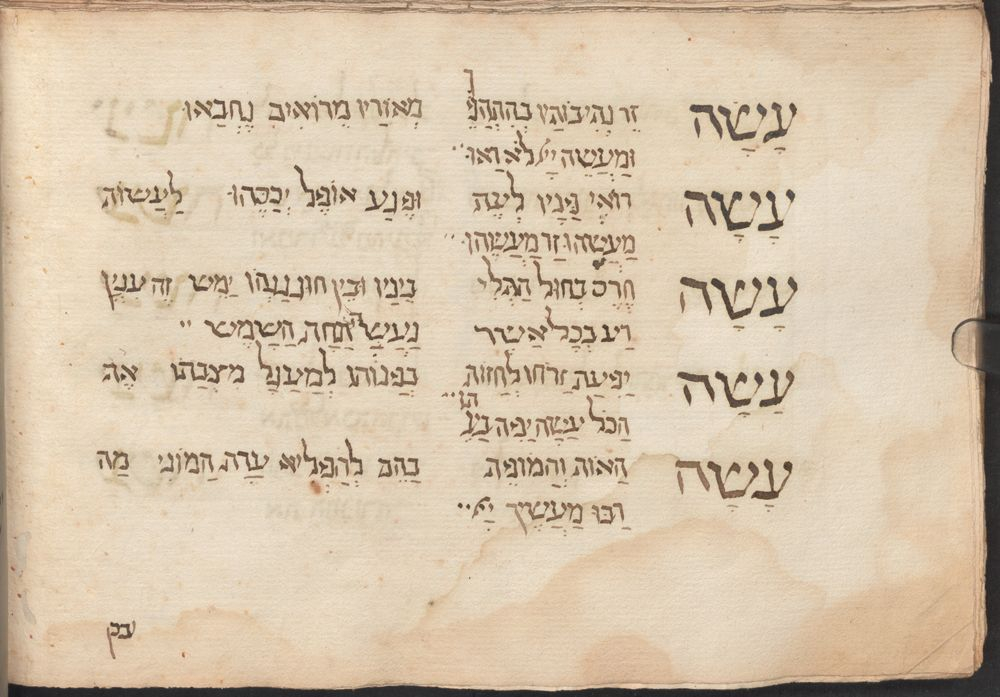 עָשָׂה זֵר נְתִיבוֹתָיו בְּהִתְהַלֵּךְ מְאוֹרָיו מֵרוֹאִים נֶחְבָּאוּ
וּמַעֲשֵׂה יְיָ לֹא רָאוּ
עָשָׂה רוֹאֵי פָּנָיו לְעֵת וּפֶגַע אוֹפֶל יְכַסֵּהוּ לַעֲשׂוֹת
מַעֲשֵׂהוּ זָר מַעֲשֵׂהוּ
עָשָׂה חֶרֶס בְּחוּל בֵּינָיו וּבֵין חוֹנְנֵהוּ יָמִישׁ זֶה עִנְיַן
רַע בְּכָל אֲשֶׁר נַעֲשָׂה תַּחַת הַשָּׁמֶשׁ
עָשָׂה יִפְעַת זָרְחוֹ לַחֲזוֹת בִּפְנוֹתוֹ לְמַעְגַּל מַצָּבְתּוֹ אֶת
הַכֹּל יָפֶה בְעִתּוֹ
עָשָׂה הָאוֹת וְהַמּוֹפֵת בָּהֶם לְהַפְלִיא עֲדַת הֲמוֹנַי מָה
רַבּוּ מַעֲשֶׂיךָ יְיָ